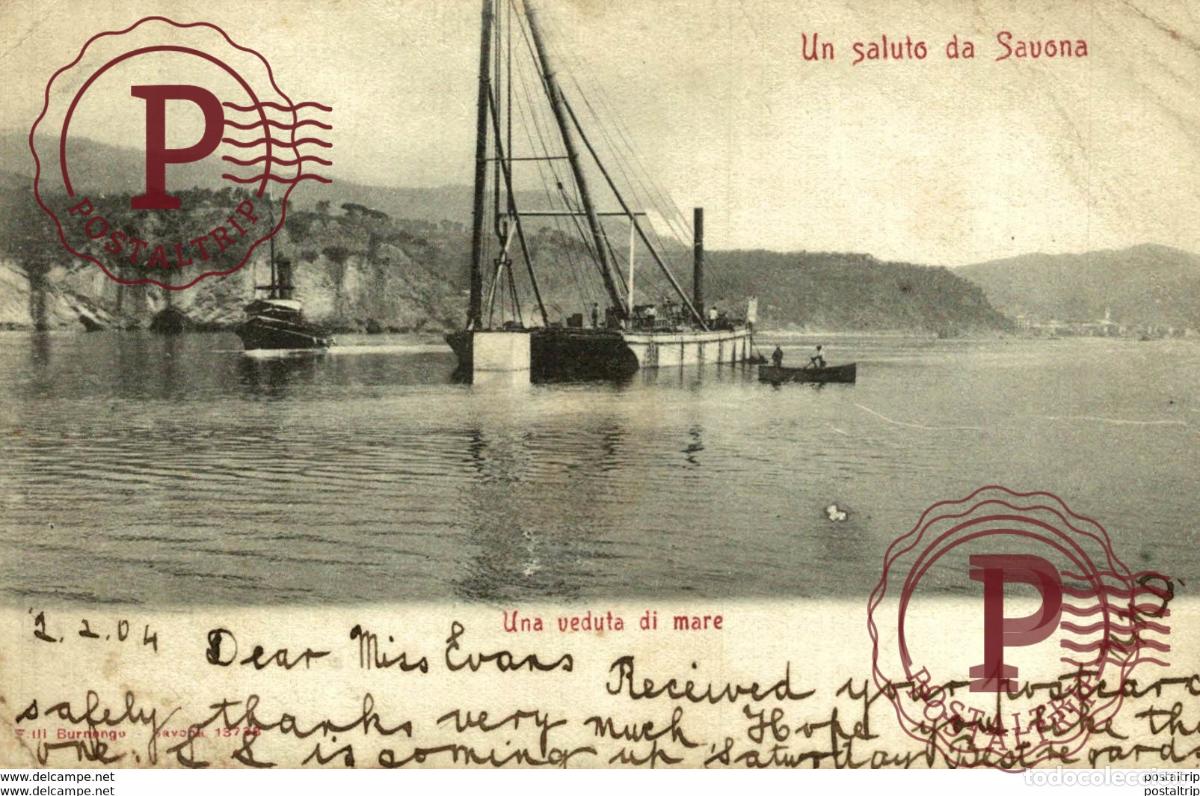 Un saluto da Savona
P
POSTALTRIP
Una veduta di mare
2.2.04 Dear Miss Evans
Received your postcard
safely thanks very much. Hope you like th
one. is coming up Saturday Best regards
F.lli Burnengo Savona 137
P
POSTALTRIP
todocoleccion
www.delcampe.net postaltrip
www.delcampe.net postaltrip